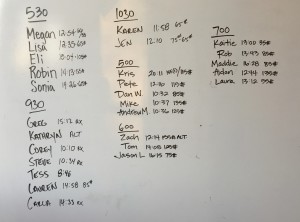 530
Megan 12:54
Lisa 12:35
Eli 10:04
Robin 14:13
Sonia 14:26
930
GREG 15:12 RX
KATHRYN ALT
COREY 10:10 RX
STEVE 10:34 RX
TESS 8:46
LAUREN 14:58 85#
CARLA 14:33 RX
1030
KAREN 11:58 65#
JEN 12:10 75# 65#
500
Kris 20:11
Pete 12:40
Dan W. 10:32 85#
Mike 10:37 135#
Andrew M. 10:36 125#
600
Zach 12:34 ALT
Tom 14:08
Jason L. 16:15 75#
700
Katie 13:00 35#
Rob 13:43 85#
Maddie 18:28
Aidan 12:44 135#
Laura 13:12 55#